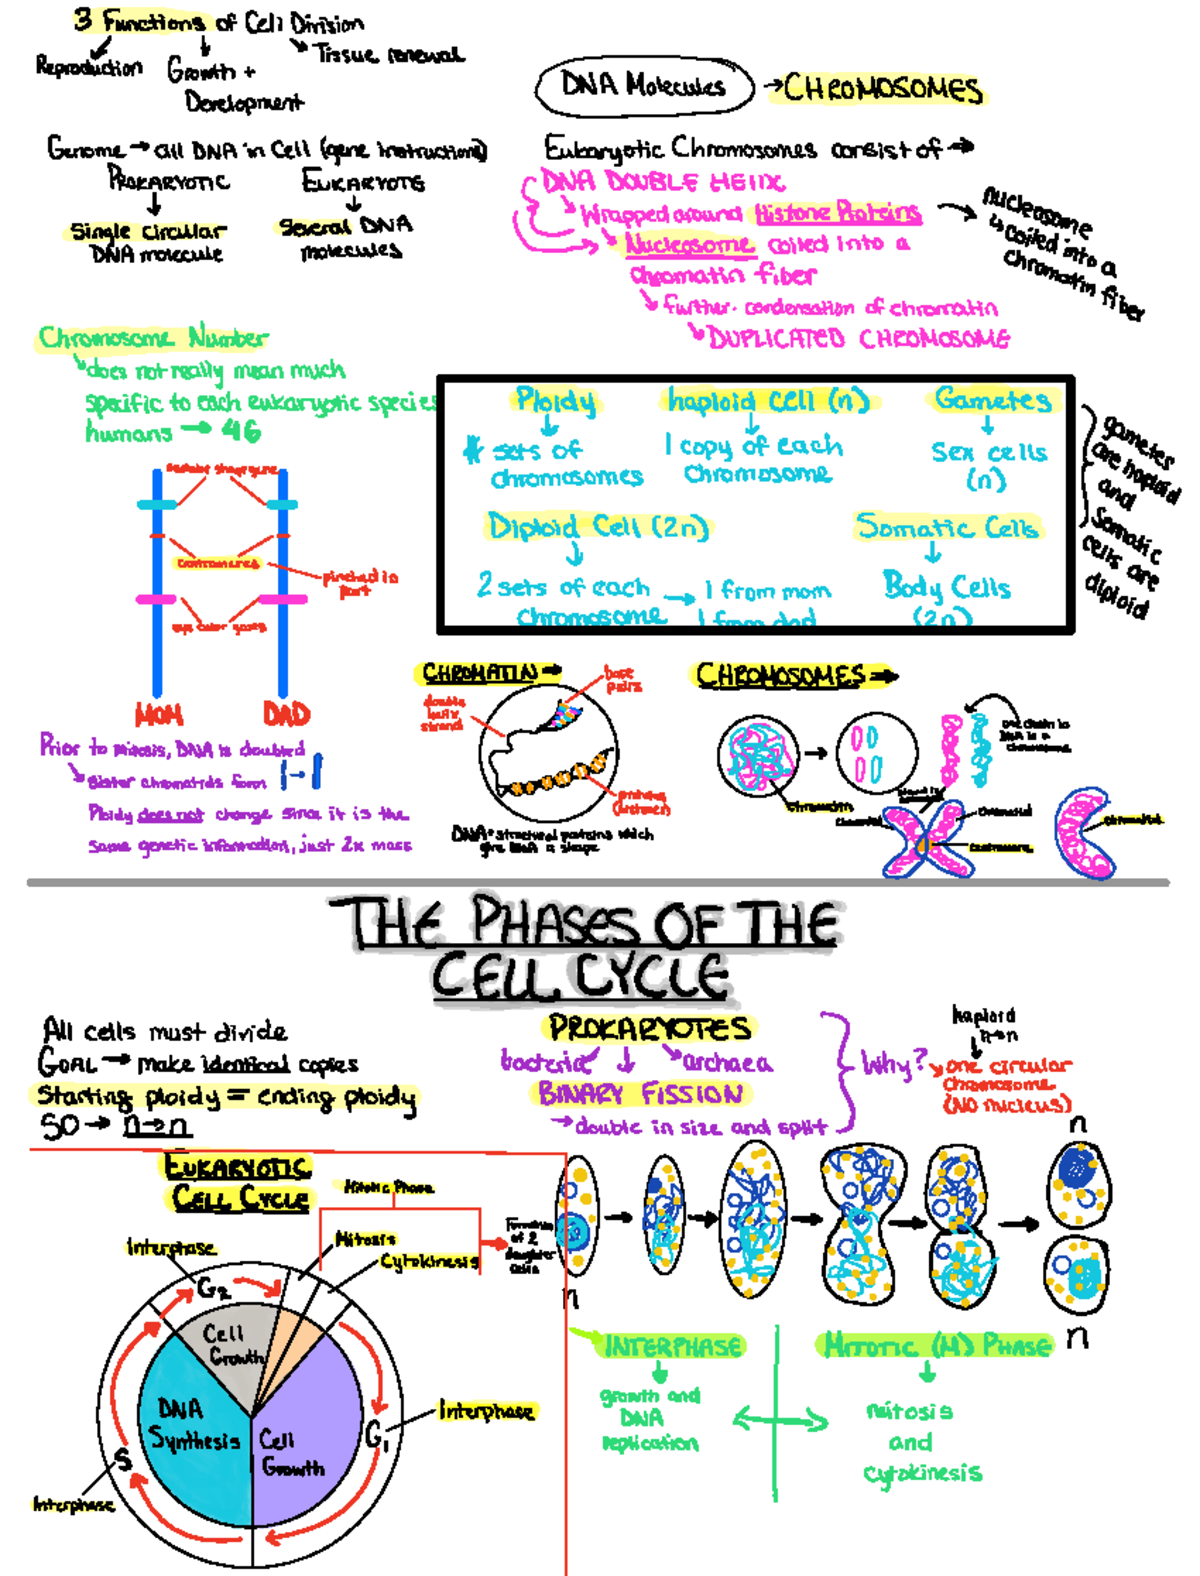 3 Functions of Cell Division
Reproduction
Growth +
Development
Tissue renewal
Genome → all DNA in Cell (gene instructions)
PROKARYOTIC
Single circular
DNA molecule
EUKARYOTE
Several DNA
molecules
DNA Molecules → CHROMOSOMES
Eukaryotic Chromosomes consist of →
DNA DOUBLE HELIX
Wrapped around Histone Proteins
Nucleosome coiled into a
chromatin fiber
further condensation of chromatin
DUPLICATED CHROMOSOME
nucleosome
coiled into a
chromatin fiber
Chromosome Number
does not really mean much
specific to each eukaryotic species
humans → 46
centromeres
pinched in
part
eye color genes
MOM
DAD
Prior to mitosis, DNA is doubled
Sister chromatids form
Ploidy does not change since it is the
same genetic information, just 2x mass
Ploidy
# sets of
chromosomes
haploid cell (n)
1 copy of each
chromosome
Gametes
Sex cells
(n)
Diploid Cell (2n)
2 sets of each → 1 from mom
chromosome 1 from dad
Somatic Cells
Body Cells
(2n)
gametes
are haploid
and
Somatic
cells are
diploid
CHROMATIN →
double
helix
strand
base
pairs
proteins
(histones)
DNA + structural proteins which
give DNA a shape
CHROMOSOMES →
Chromatin
one chain of
DNA is a
chromosome
Chromatid
Chromatid
Centromere
Chromatid
THE PHASES OF THE
CELL CYCLE
All cells must divide
GOAL → make identical copies
Starting ploidy = ending ploidy
SO → n→n
PROKARYOTES
bacteria
archaea
BINARY FISSION
→ double in size and split
Why?
haploid
n→n
one circular
chromosome
(NO nucleus)
EUKARYOTIC
CELL CYCLE
Mitotic Phase
Mitosis
Cytokinesis
Formation
of 2
daughter
cells
Interphase
G2
Cell
Growth
DNA
Synthesis
Cell
Growth
G1
Interphase
S
Interphase
n
n
n
INTERPHASE
growth and
DNA
replication
MITOTIC (M) PHASE
mitosis
and
cytokinesis